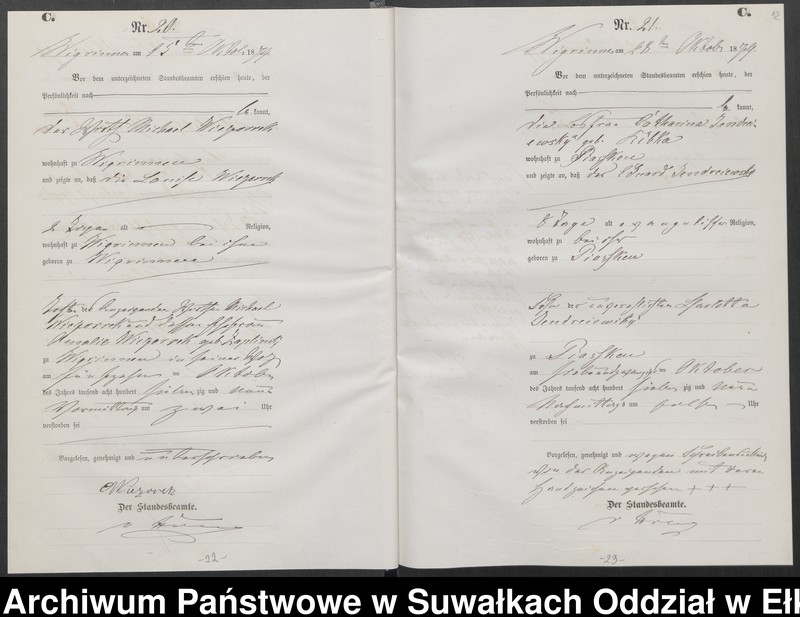 C.
Nr. 20.
Wigrinnen am 15ten Oktober 1879.
Vor dem unterzeichneten Standesbeamten erschien heute, der
Persönlichkeit nach
be kannt,
der Michael Wiezorrek
wohnhaft zu Wigrinnen
und zeigte an, daß die Louise Wiezorrek
alt Religion,
wohnhaft zu Wigrinnen bei ihm
geboren zu Wigrinnen
Tochter des Anzeigenden Michael
Wiezorrek und dessen Ehefrau
Amalie Wiezorrek geb.
zu Wigrinnen in seiner
am fünfzehn ten Oktober
des Jahres tausend acht hundert sieben zig und neun
Vormittags um zwei Uhr
verstorben sei
Vorgelesen, genehmigt und unterschrieben
M Wiezorek
Der Standesbeamte.
-22-
C.
12
Nr. 21.
Wigrinnen am 28ten Oktober 1879.
Vor dem unterzeichneten Standesbeamten erschien heute, der
Persönlichkeit nach
be kannt,
die Losfrau Catharina Jendrei-
ewsky geb.
wohnhaft zu Piasken
und zeigte an, daß der Eduard Jendreiewsky
8 Tage alt evangelischer Religion,
wohnhaft zu bei ihr
geboren zu Piasken
Sohn der unverehelichten
Jendreiewsky
zu Piasken
am siebenundzwanzigsten Oktober
des Jahres tausend acht hundert sieben zig und neun
Nachmittags um Uhr
verstorben sei
Vorgelesen, genehmigt und wegen
von der Anzeigenden mit ihrem
Handzeichen versehen + + +
Der Standesbeamte.
-23-
Archiwum Państwowe w Suwałkach Oddział w Ełk